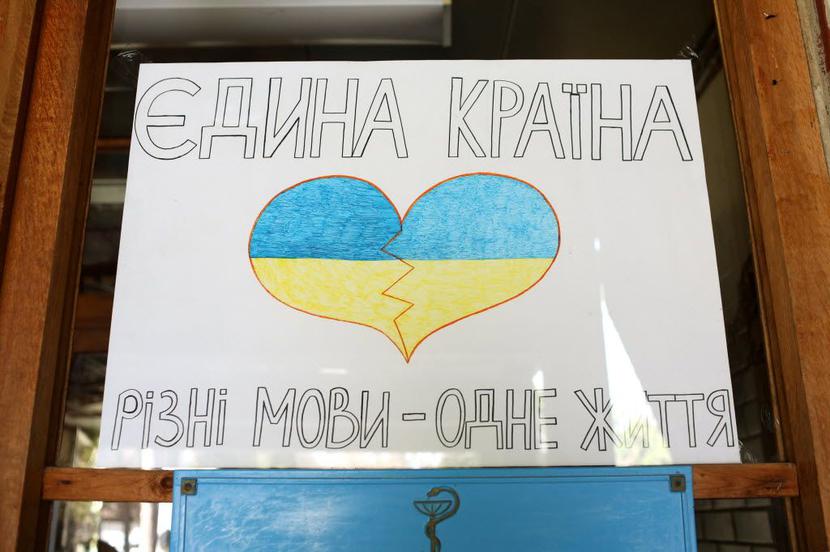 ЄДИНА КРАЇНА
РІЗНІ МОВИ – ОДНЕ ЖИТТЯ